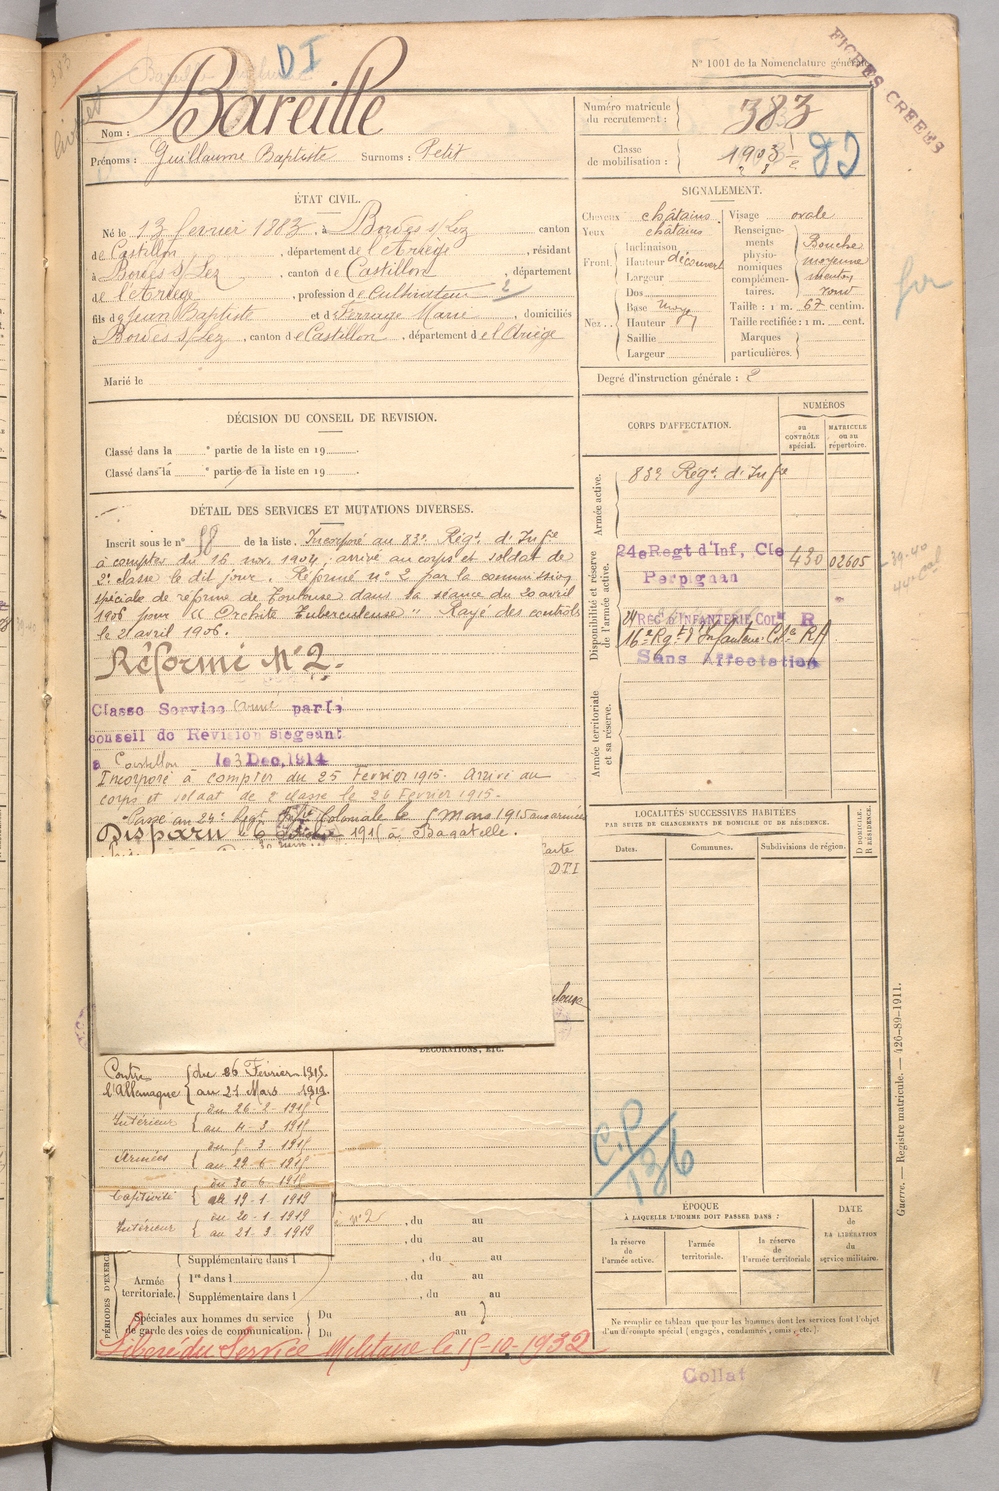 DI
N° 1001 de la Nomenclature générale
FICHES CREEES
Nom : Bareille
Prénoms : Guillaume Baptiste Surnoms : Petit
Numéro matricule du recrutement : 383
Classe de mobilisation : 1903
ÉTAT CIVIL.
Né le 13 février 1883, à Bordes s/Lez canton
de Castillon, département de l'Ariège, résidant
à Bordes s/Lez, canton de Castillon, département
de l'Ariège, profession de cultivateur 2
fils de Jean Baptiste et de Ferraye Marie, domiciliés
à Bordes s/Lez, canton de Castillon, département de l'Ariège
Marié le
SIGNALEMENT.
Cheveux châtains. Visage ovale
Yeux châtains
Front. Inclinaison
Hauteur découvert
Largeur
Nez. Dos
Base moy
Hauteur
Saillie
Largeur
Renseignements physionomiques complémentaires. Bouche moyenne menton rond
Taille : 1 m. 67 centim.
Taille rectifiée : 1 m. cent.
Marques particulières.
Degré d'instruction générale : 2
DÉCISION DU CONSEIL DE REVISION.
Classé dans la e partie de la liste en 19
Classé dans la e partie de la liste en 19
DÉTAIL DES SERVICES ET MUTATIONS DIVERSES.
Inscrit sous le n° 58 de la liste. Incorporé au 83e Régt d'Infie
à compter du 16 nov. 1904, arrivé au corps et soldat de
2e classe le dit jour. Réformé n° 2 par la commission
spéciale de réforme de Toulouse dans la séance du 20 avril
1906 pour "Orchite Tuberculeuse" Rayé des contrôles
le 21 avril 1906.
Réformé N° 2.
Classé Service armé par le
conseil de Revision siégeant
à Castillon le 3 Dec. 1914
Incorporé à compter du 25 Février 1915. Arrivé au
corps et soldat de 2e classe le 26 Février 1915.
Passé au 24e Régt Infie Coloniale le 5 Mars 1915 aux armées
Disparu le 1915 à Bagatelle.
Carte
DTI
CORPS D'AFFECTATION.
NUMÉROS
au CONTRÔLE spécial.
MATRICULE ou au répertoire.
Armée active.
83e Régt d'Infie
Disponibilité et réserve de l'armée active.
24e Regt d'Inf. Cle 430 02605
Perpignan
39-40
24 REG D'INFANTERIE COLe R
16e Rgt d'Infanterie Cole RA
Sans Affectation
Armée territoriale et sa réserve.
LOCALITÉS SUCCESSIVES HABITÉES
PAR SUITE DE CHANGEMENTS DE DOMICILE OU DE RÉSIDENCE.
Dates. Communes. Subdivisions de région. D DOMICILE. R RÉSIDENCE.
DÉCORATIONS, ETC.
Contre l'Allemagne du 26 Février 1915.
au 21 Mars 1919.
Intérieur du 26-2-1915
au 4-3-1915
Armées du 5-3-1915
au 29-6-1915
Captivité du 30 6-1915
au 19-1-1919
Intérieur du 20-1-1919
au 21-3-1919
n° 2, du au
, du au
Supplémentaire dans l , du au
Armée territoriale. 1re dans l , du au
Supplémentaire dans l , du au
Spéciales aux hommes du service de garde des voies de communication. Du au
Du au
PÉRIODES D'EXERC
Libéré du Service Militaire le 15-10-1932
C.P
136
ÉPOQUE
À LAQUELLE L'HOMME DOIT PASSER DANS :
la réserve de l'armée active.
l'armée territoriale.
la réserve de l'armée territoriale
DATE de LA LIBÉRATION du service militaire.
Ne remplir ce tableau que pour les hommes dont les services font l'objet
d'un décompte spécial (engagés, condamnés, omis, etc.).
Guerre. — Registre matricule. — 426-89-1911.
Collat